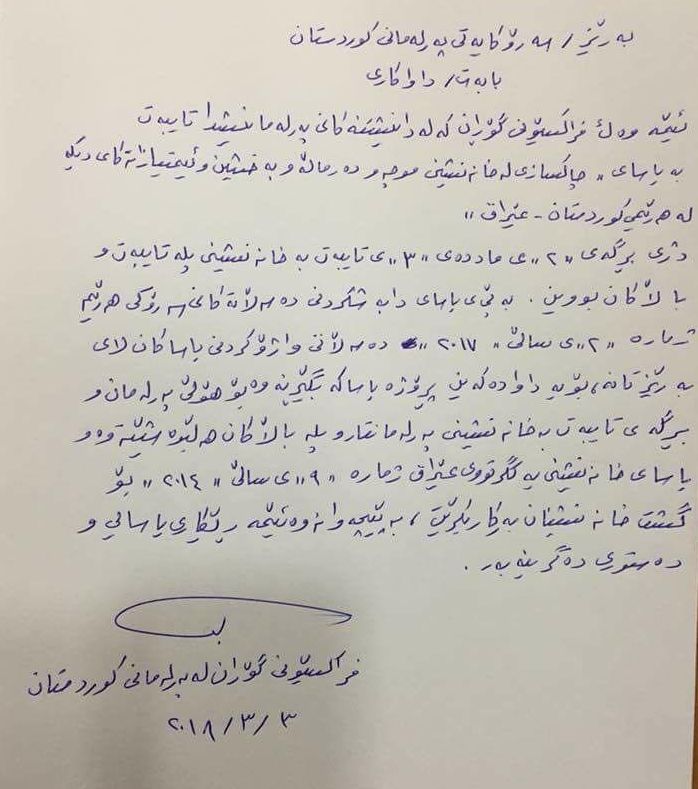 بەڕێز/ سەرۆکایەتی پەرلەمانی کوردستان
بابەت/ داواکاری
ئێمە وەک فراکسیۆنی گۆڕان کە لە دانیشتنەکانی پەرلەمانیشدا تایبەت
بە یاسای " چاکسازی لە خانەنشینی موچە و دەرماڵە و بەخشین و ئیمتیازاتەکانی دیکە
لە هەرێمی کوردستان - عێراق "
دژی بڕگەی "٢" ی ماددەی "٣" ی تایبەت بە خانەنشینی پلە تایبەت و
باڵاکان بووین . بە پێی یاسای دابەشکردنی دەسەڵاتەکانی سەرۆکی هەرێم
ژمارە "٢" ی ساڵی "٢٠١٧" دەسەڵاتی واژۆکردنی یاساکان لای
بەڕێزتانە، بۆیە داوادەکەین پڕۆژە یاساکە بگێڕنەوە بۆ هۆڵی پەرلەمان و
بڕگەی تایبەت بە خانەنشینی پەرلەمانتار و پلە باڵاکان هەڵبوەشێتەوە و
یاسای خانەنشینی یەکگرتووی عێراق ژمارە "٩" ی ساڵی "٢٠١٤" بۆ
گشت خانەنشینان بەکاربگرێت، بە پێچەوانەوە ئێمە ڕێکاری یاسایی و
دەستوری دەگرینەبەر .
فراکسیۆنی گۆڕان لە پەرلەمانی کوردستان
٢٠١٨/٣/٣